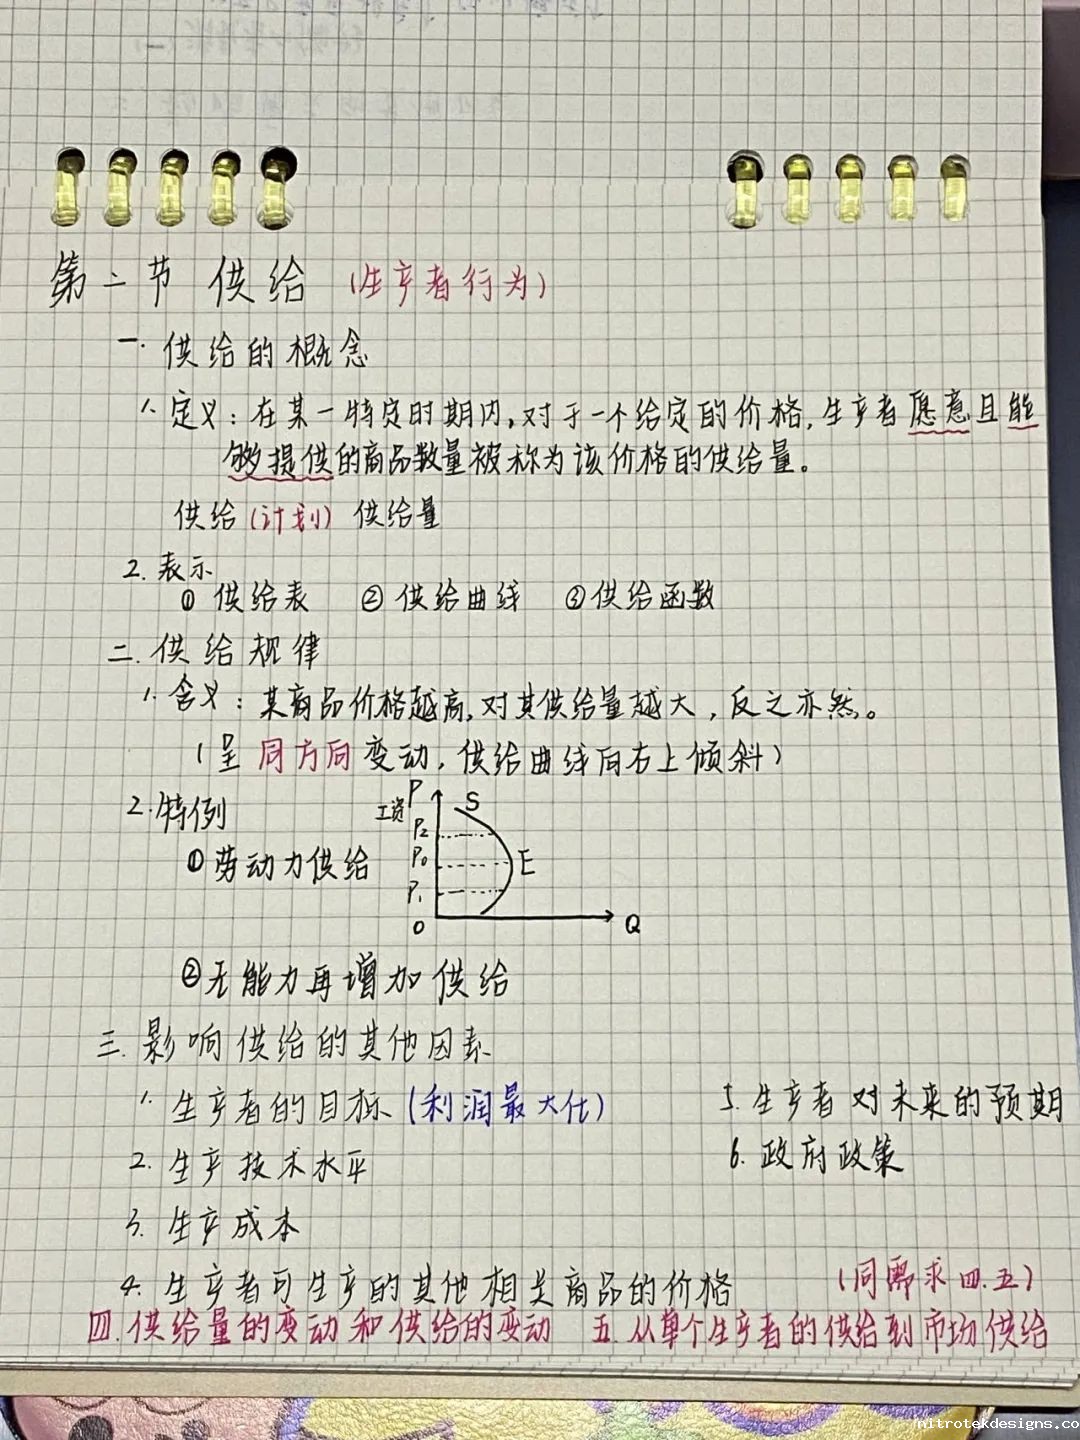 第二节 供给 (生产者行为)
一. 供给的概念
1. 定义：在某一特定时期内,对于一个给定的价格,生产者愿意且能
够提供的商品数量被称为该价格的供给量。
供给(计划) 供给量
2. 表示
① 供给表 ② 供给曲线 ③ 供给函数
二. 供给规律
1. 含义：某商品价格越高,对其供给量越大，反之亦然。
(呈同方向变动，供给曲线向右上倾斜)
2. 特例
① 劳动力供给
P
工资
S
P2
P0
E
P1
O
Q
② 无能力再增加供给
三. 影响供给的其他因素
1. 生产者的目标 (利润最大化)
2. 生产技术水平
3. 生产成本
4. 生产者可生产的其他相关商品的价格
5. 生产者对未来的预期
6. 政府政策
(同需求四.五)
四.供给量的变动和供给的变动 五.从单个生产者的供给到市场供给
nitrotekdesigns.co